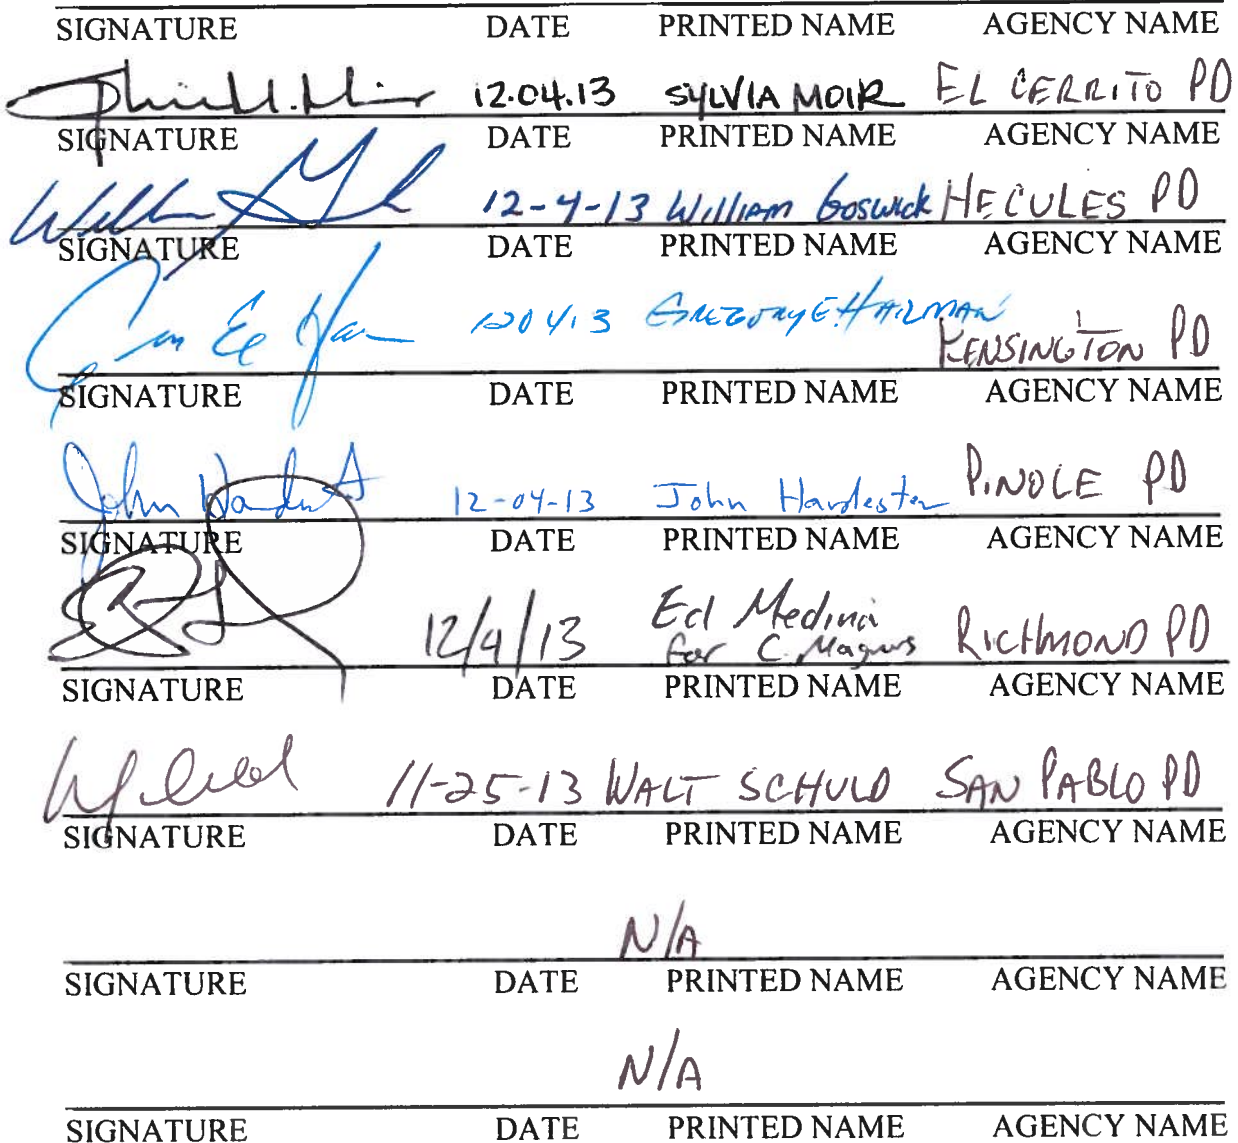 SIGNATURE DATE PRINTED NAME AGENCY NAME
12.04.13 SYLVIA MOIR EL CERRITO PD
SIGNATURE DATE PRINTED NAME AGENCY NAME
12-4-13 William Goswick HECULES PD
SIGNATURE DATE PRINTED NAME AGENCY NAME
120413 GREGORY E. HARMAN
KENSINGTON PD
SIGNATURE DATE PRINTED NAME AGENCY NAME
John 12-04-13 John Hardester PINOLE PD
SIGNATURE DATE PRINTED NAME AGENCY NAME
12/4/13 Ed Medina RICHMOND PD
for C. Magnus
SIGNATURE DATE PRINTED NAME AGENCY NAME
11-25-13 WALT SCHULD SAN PABLO PD
SIGNATURE DATE PRINTED NAME AGENCY NAME
N/A
SIGNATURE DATE PRINTED NAME AGENCY NAME
N/A
SIGNATURE DATE PRINTED NAME AGENCY NAME